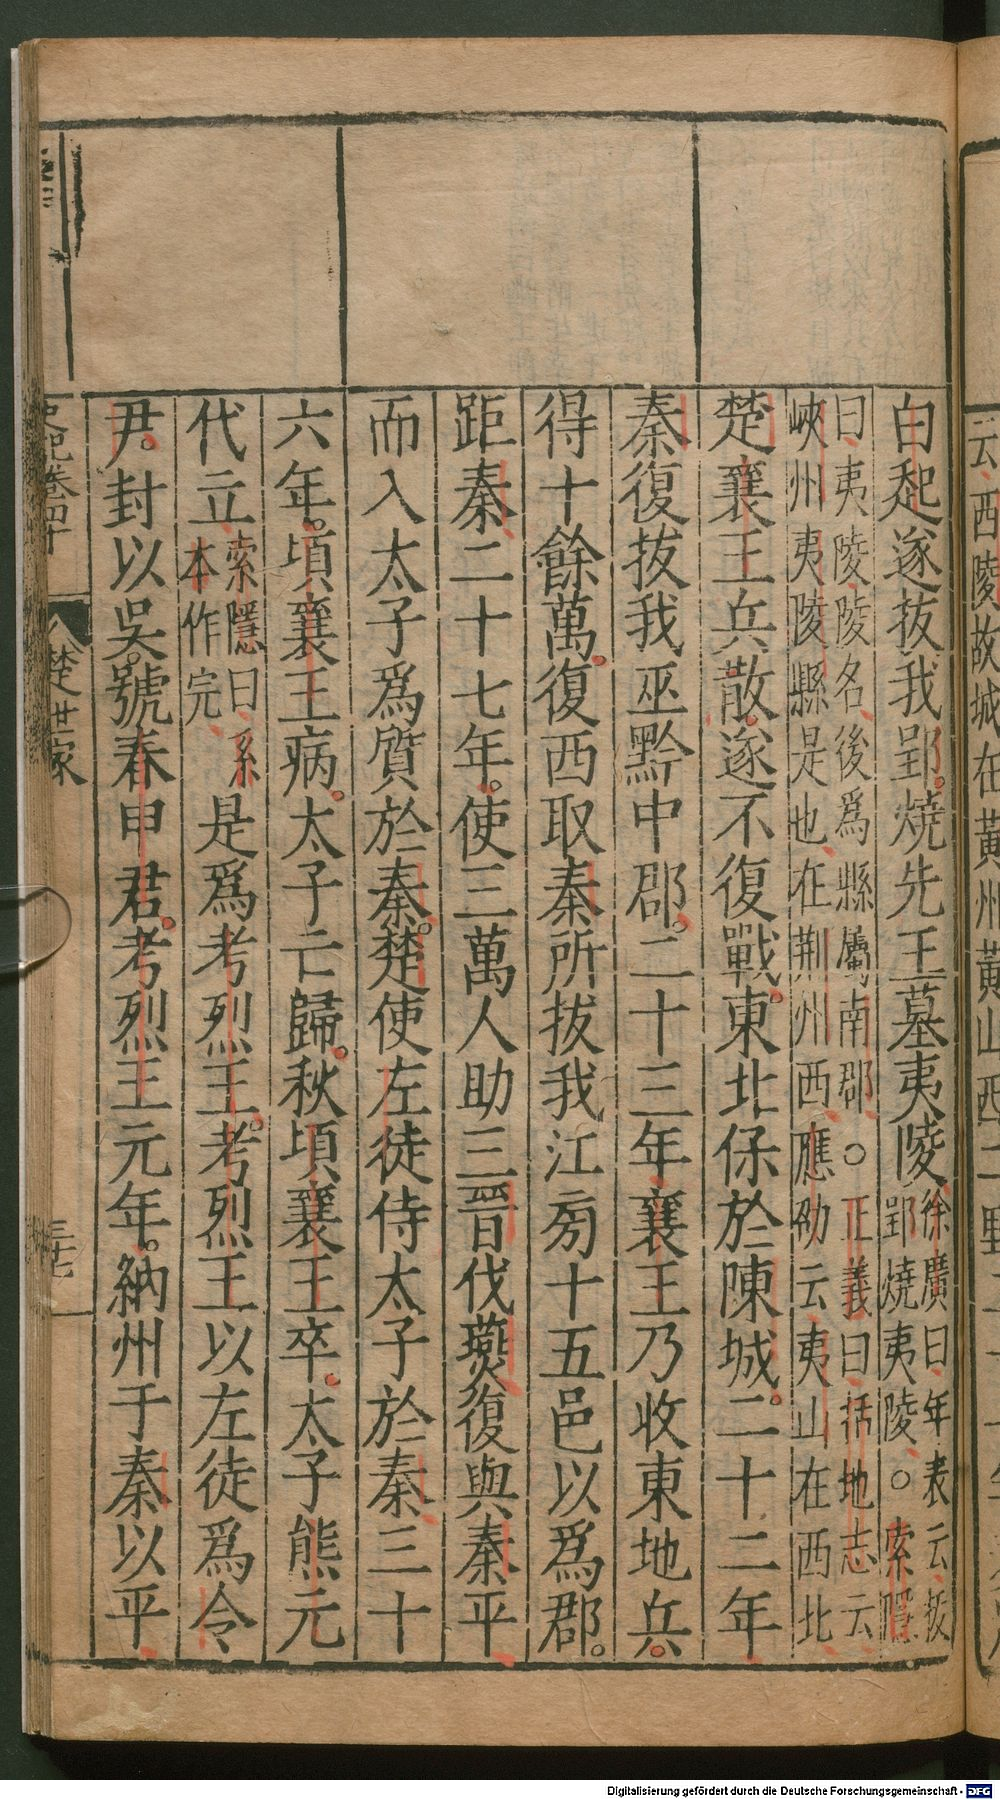 白起遂拔我郢。燒先王墓夷陵徐廣曰、年表云、拔郢燒夷陵、○索隱
曰、夷陵、陵名、後爲縣屬南郡、○正義曰、括地志云、峽州夷陵縣是也、在荆州西、應劭云、夷山在西北、
楚襄王兵散。遂不復戰。東北保於陳城。二十二年
秦復拔我巫黔中郡。二十三年、襄王乃收東地兵。
得十餘萬。復西取秦所拔我江旁十五邑以爲郡。
距秦、二十七年。使三萬人助三晉伐燕、復與秦平
而入太子爲質於秦。楚使左徒侍太子於秦、三十
六年。頃襄王病。太子亡歸。秋頃襄王卒。太子熊元
代立、索隱曰、系本作完、是爲考烈王。考烈王以左徒爲令
尹。封以吳。號春申君。考烈王元年。納州于秦以平、
史記卷四十
楚世家
三十七
云、西陵故城在黃州黃山西二
Digitalisierung gefördert durch die Deutsche Forschungsgemeinschaft - DFG